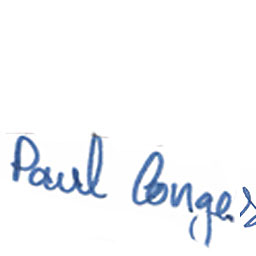 Paul Conger